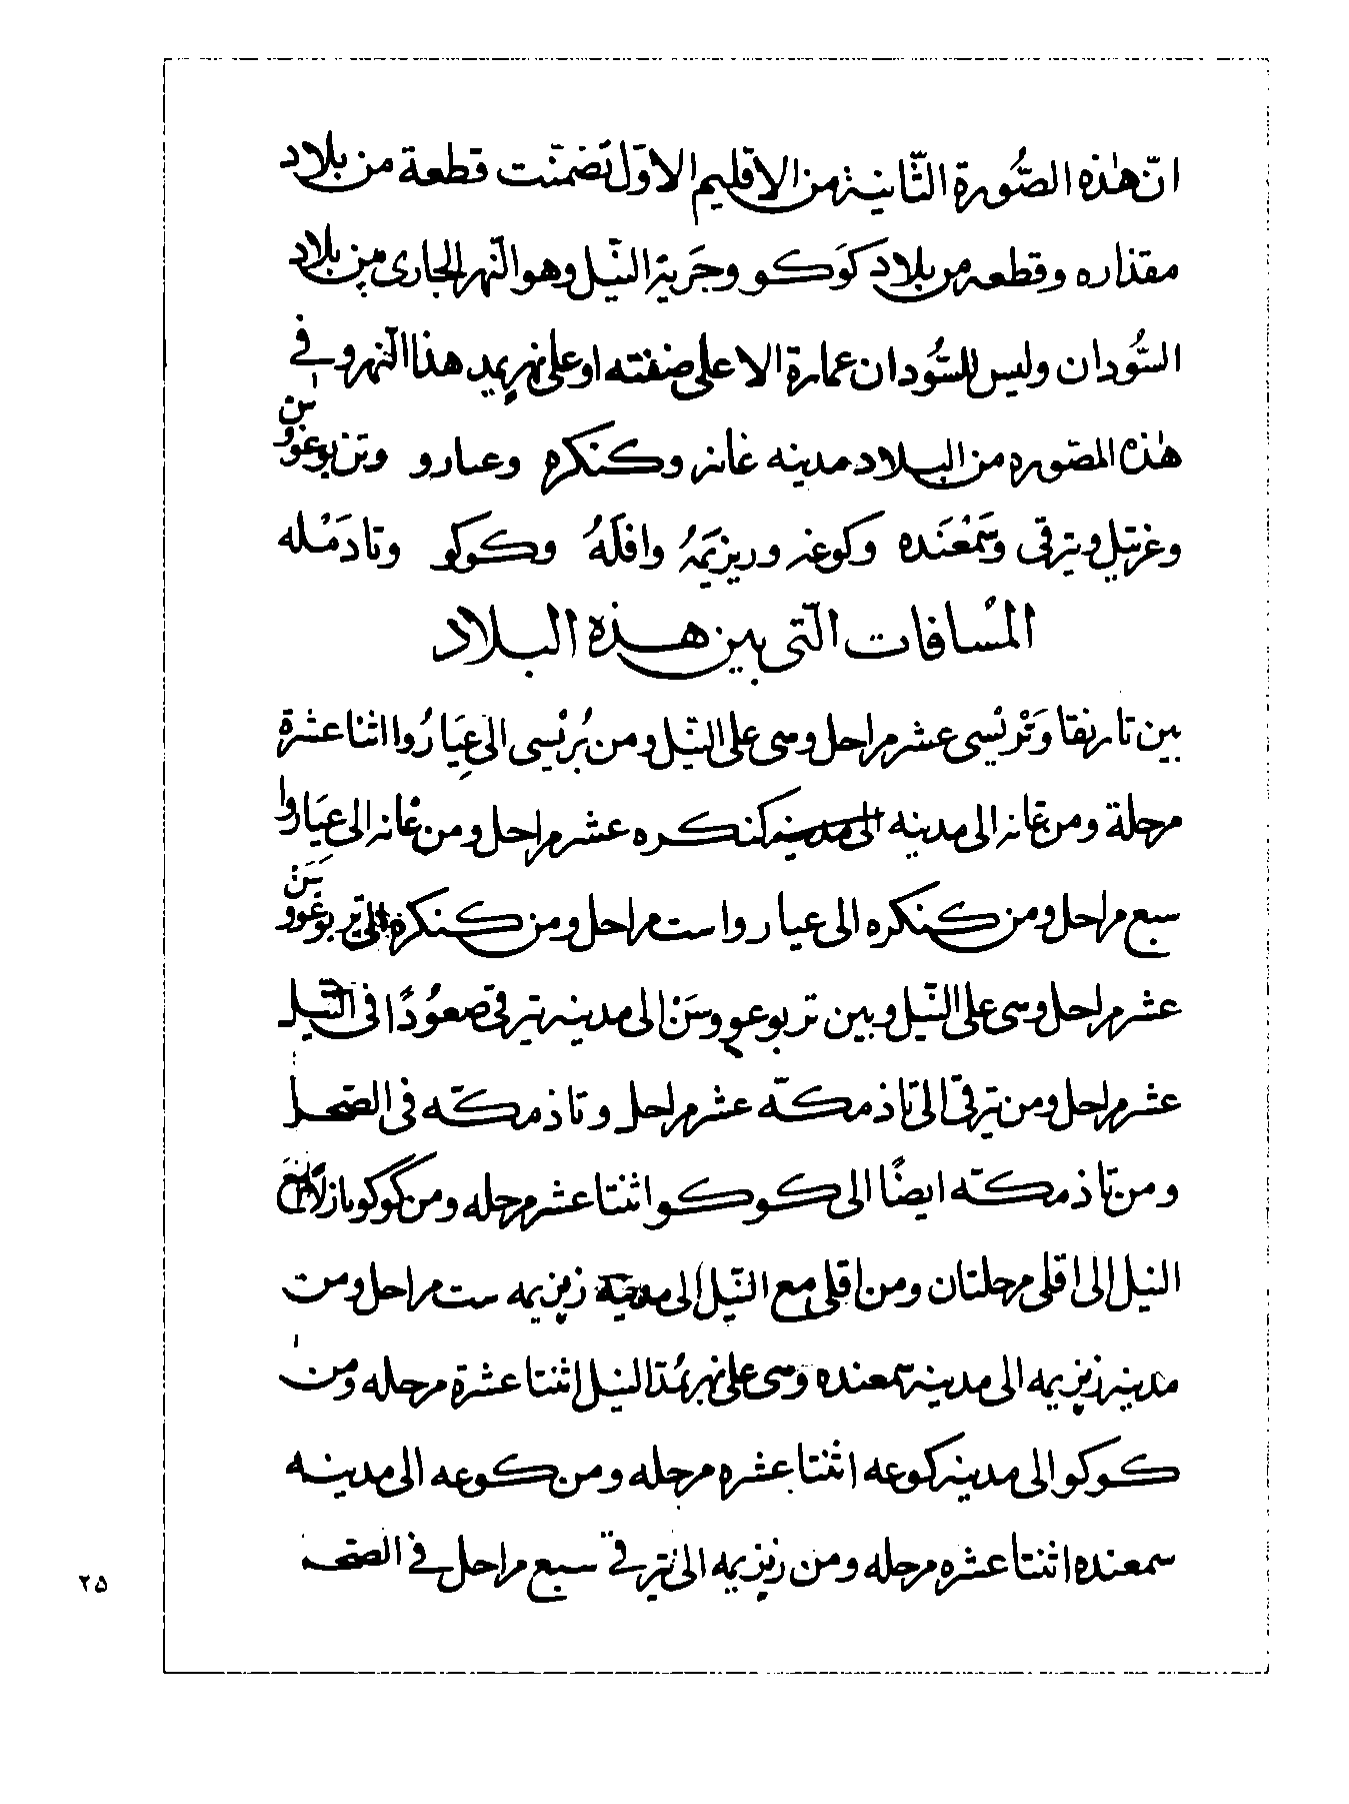 انّ هٰذه الصُّورة الثّانية من الاقليم الاوّل تَضمنّت قطعة من بلاد
مقذاره وقطعه من بلاد كوَكو وجَرية النّيل وهو النّهر الجارى من بلاد
السُّودان وليس للسُّودان عمارة الا على ضفته او على نهر يمد هذا النهر وفى
هٰذه الصّوره من البلاد مدينه غانه وكنكره وعيارو
وغرتيل وتيرقى وسَمْغَنَده وكوغه وريزيَمهُ وافلَهُ وكوكو وتادمَله
المسُافات الّتى بين هذه البلاد
بين تارنقا وَتْرنْسى عشر مراحل وسى على النّيل ومن بُرنْسى الى عِيَارُوا اثنا عشرة
مرحلة ومن غانه الى مدينه كنكره عشر مراحل ومن غانه الى عيَاروا
سبع مراحل ومن كنكره الى عياروا ست مراحل ومن كنكره الى
عشر مراحل وسى على النّيل وبين الى مدينه تيرقى صعُودًا فى النّيل
عشر مراحل ومن تيرقى الى تاذمكتّه عشر مراحل وتاذمكتّه فى الصّحرا
ومن تاذمكتّه ايضًا الى كوكو اثنتا عشر مرحله ومن كوكو نازلًا مَعَ
النيل الى اقلى مرحلتان ومن اقلى مع النّيل الى مدينة زيزيمه ست مراحل ومن
مدينه زيزيمه الى مدينه سمعنده وسى على نهر يمُدّ النيل اثنتا عشرة مرحله ومن
كوكو الى مدينه كوعه اثنتا عشره مرحله ومن كوعه الى مدينه
سمعنده اثنتا عشره مرحله ومن زيزيمه الى تيرقى سبع مراحل فى الصّحـ
٢٥